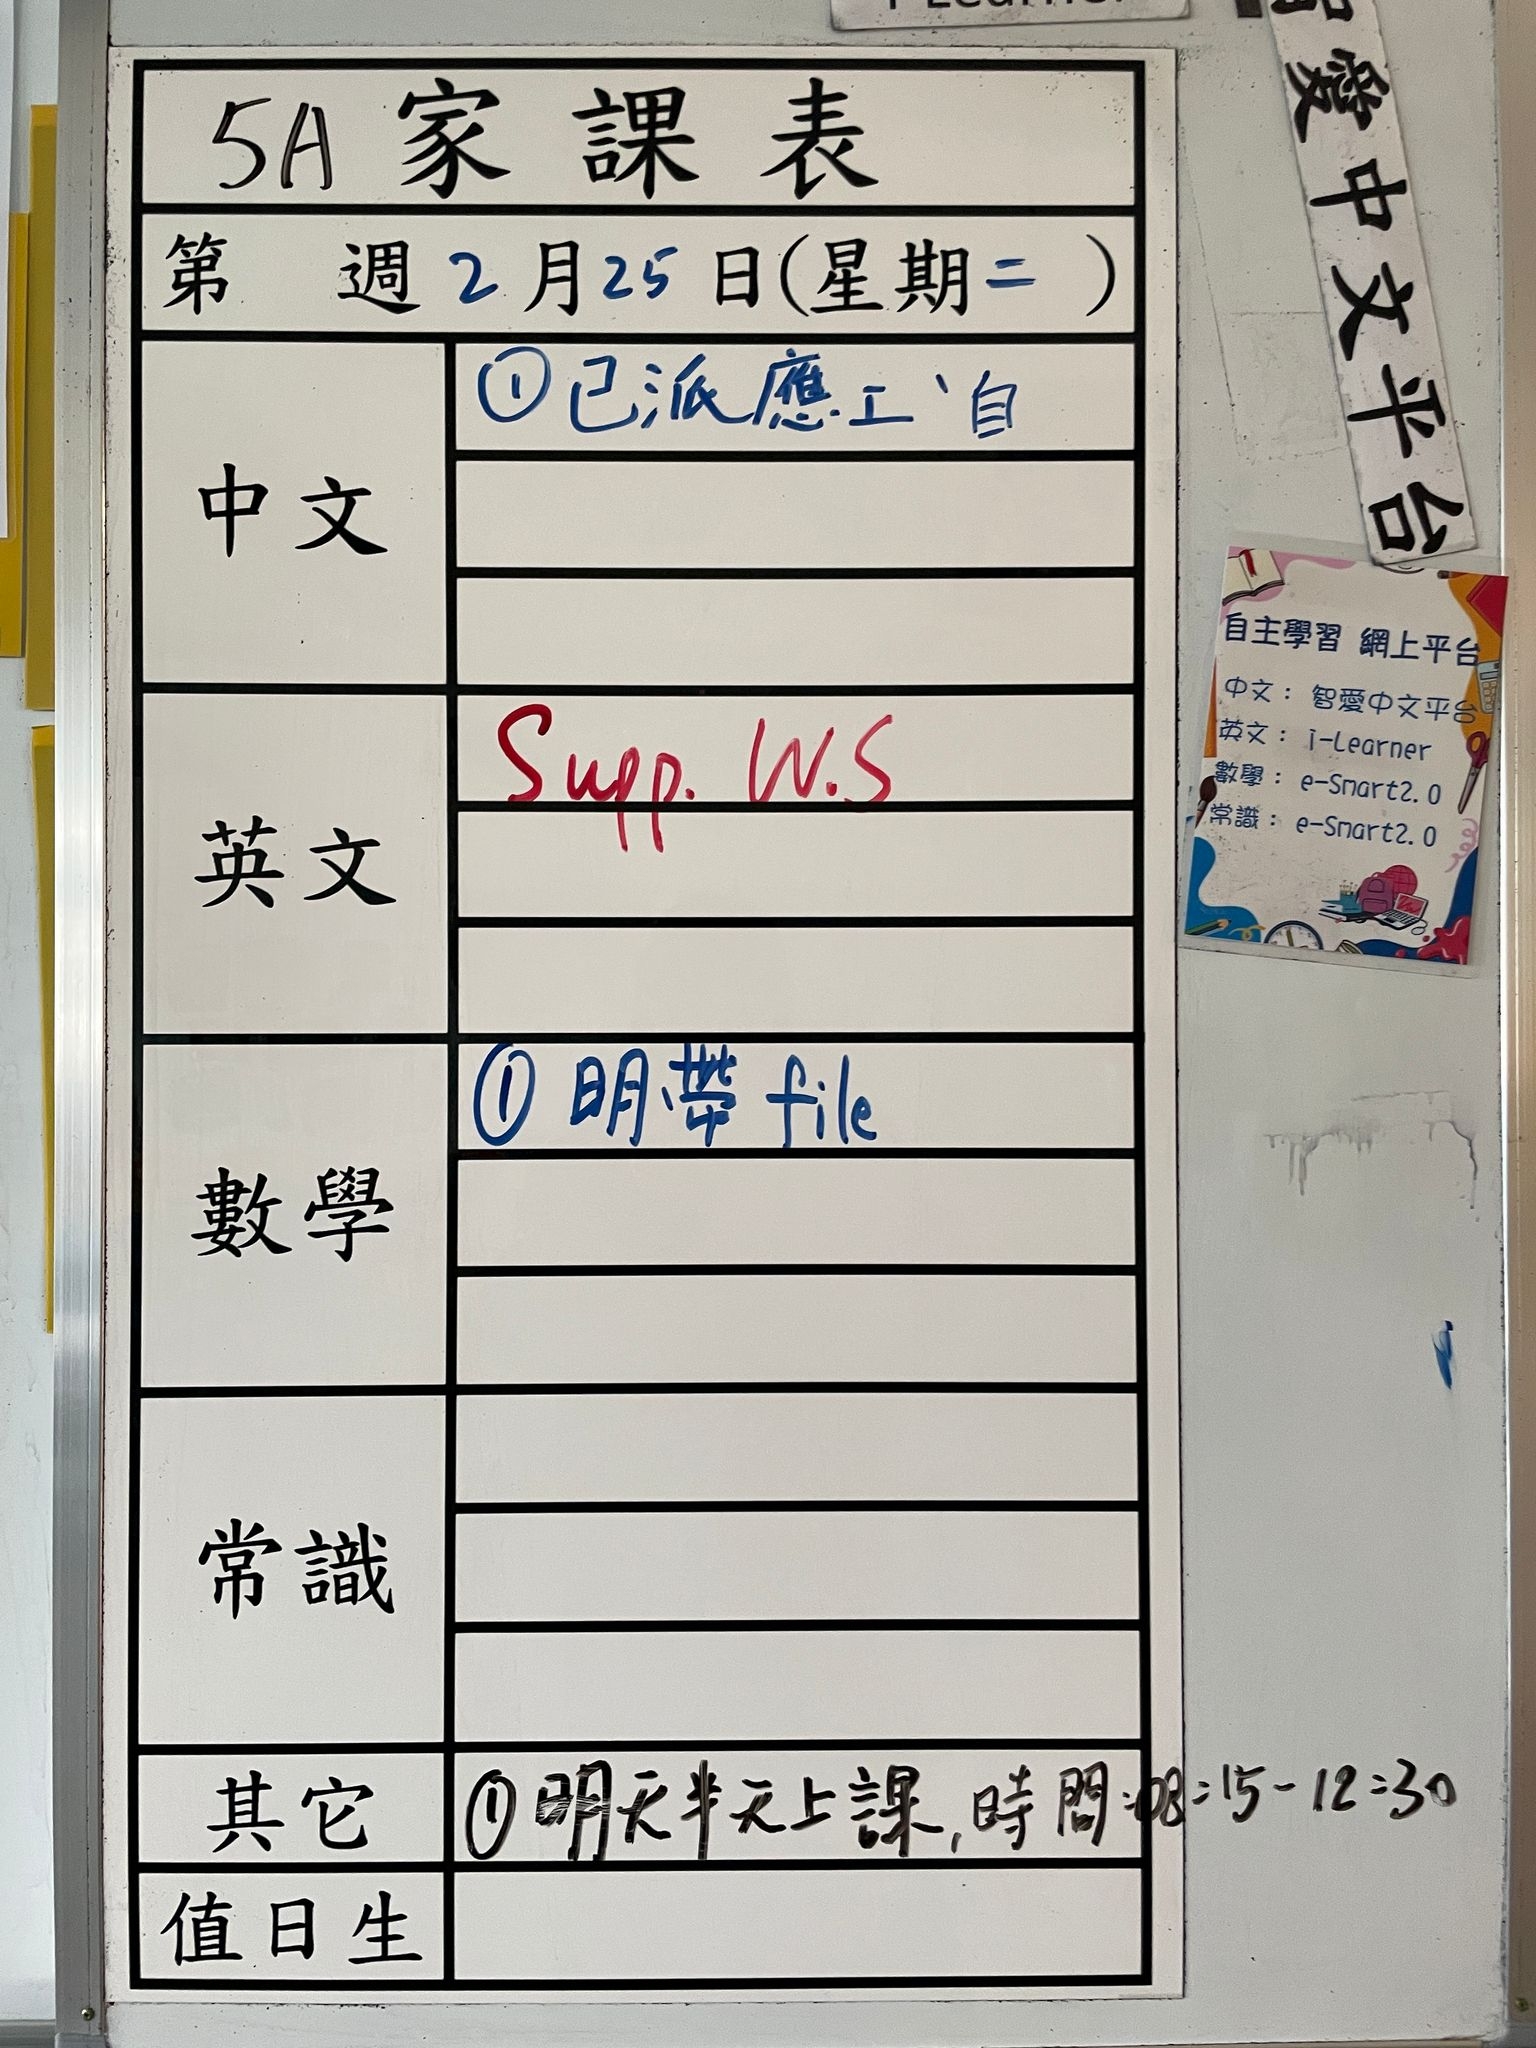 i-Learner
智愛中文平台
5A 家課表
第 週 2 月 25 日(星期二 )
中文
①已派應工、自
英文
Supp. W.S
數學
① 明帶 file
常識
其它
①明天半天上課,時間:08:15-12:30
值日生
自主學習 網上平台
中文: 智愛中文平台
英文: i-Learner
數學: e-Smart2.0
常識: e-Smart2.0